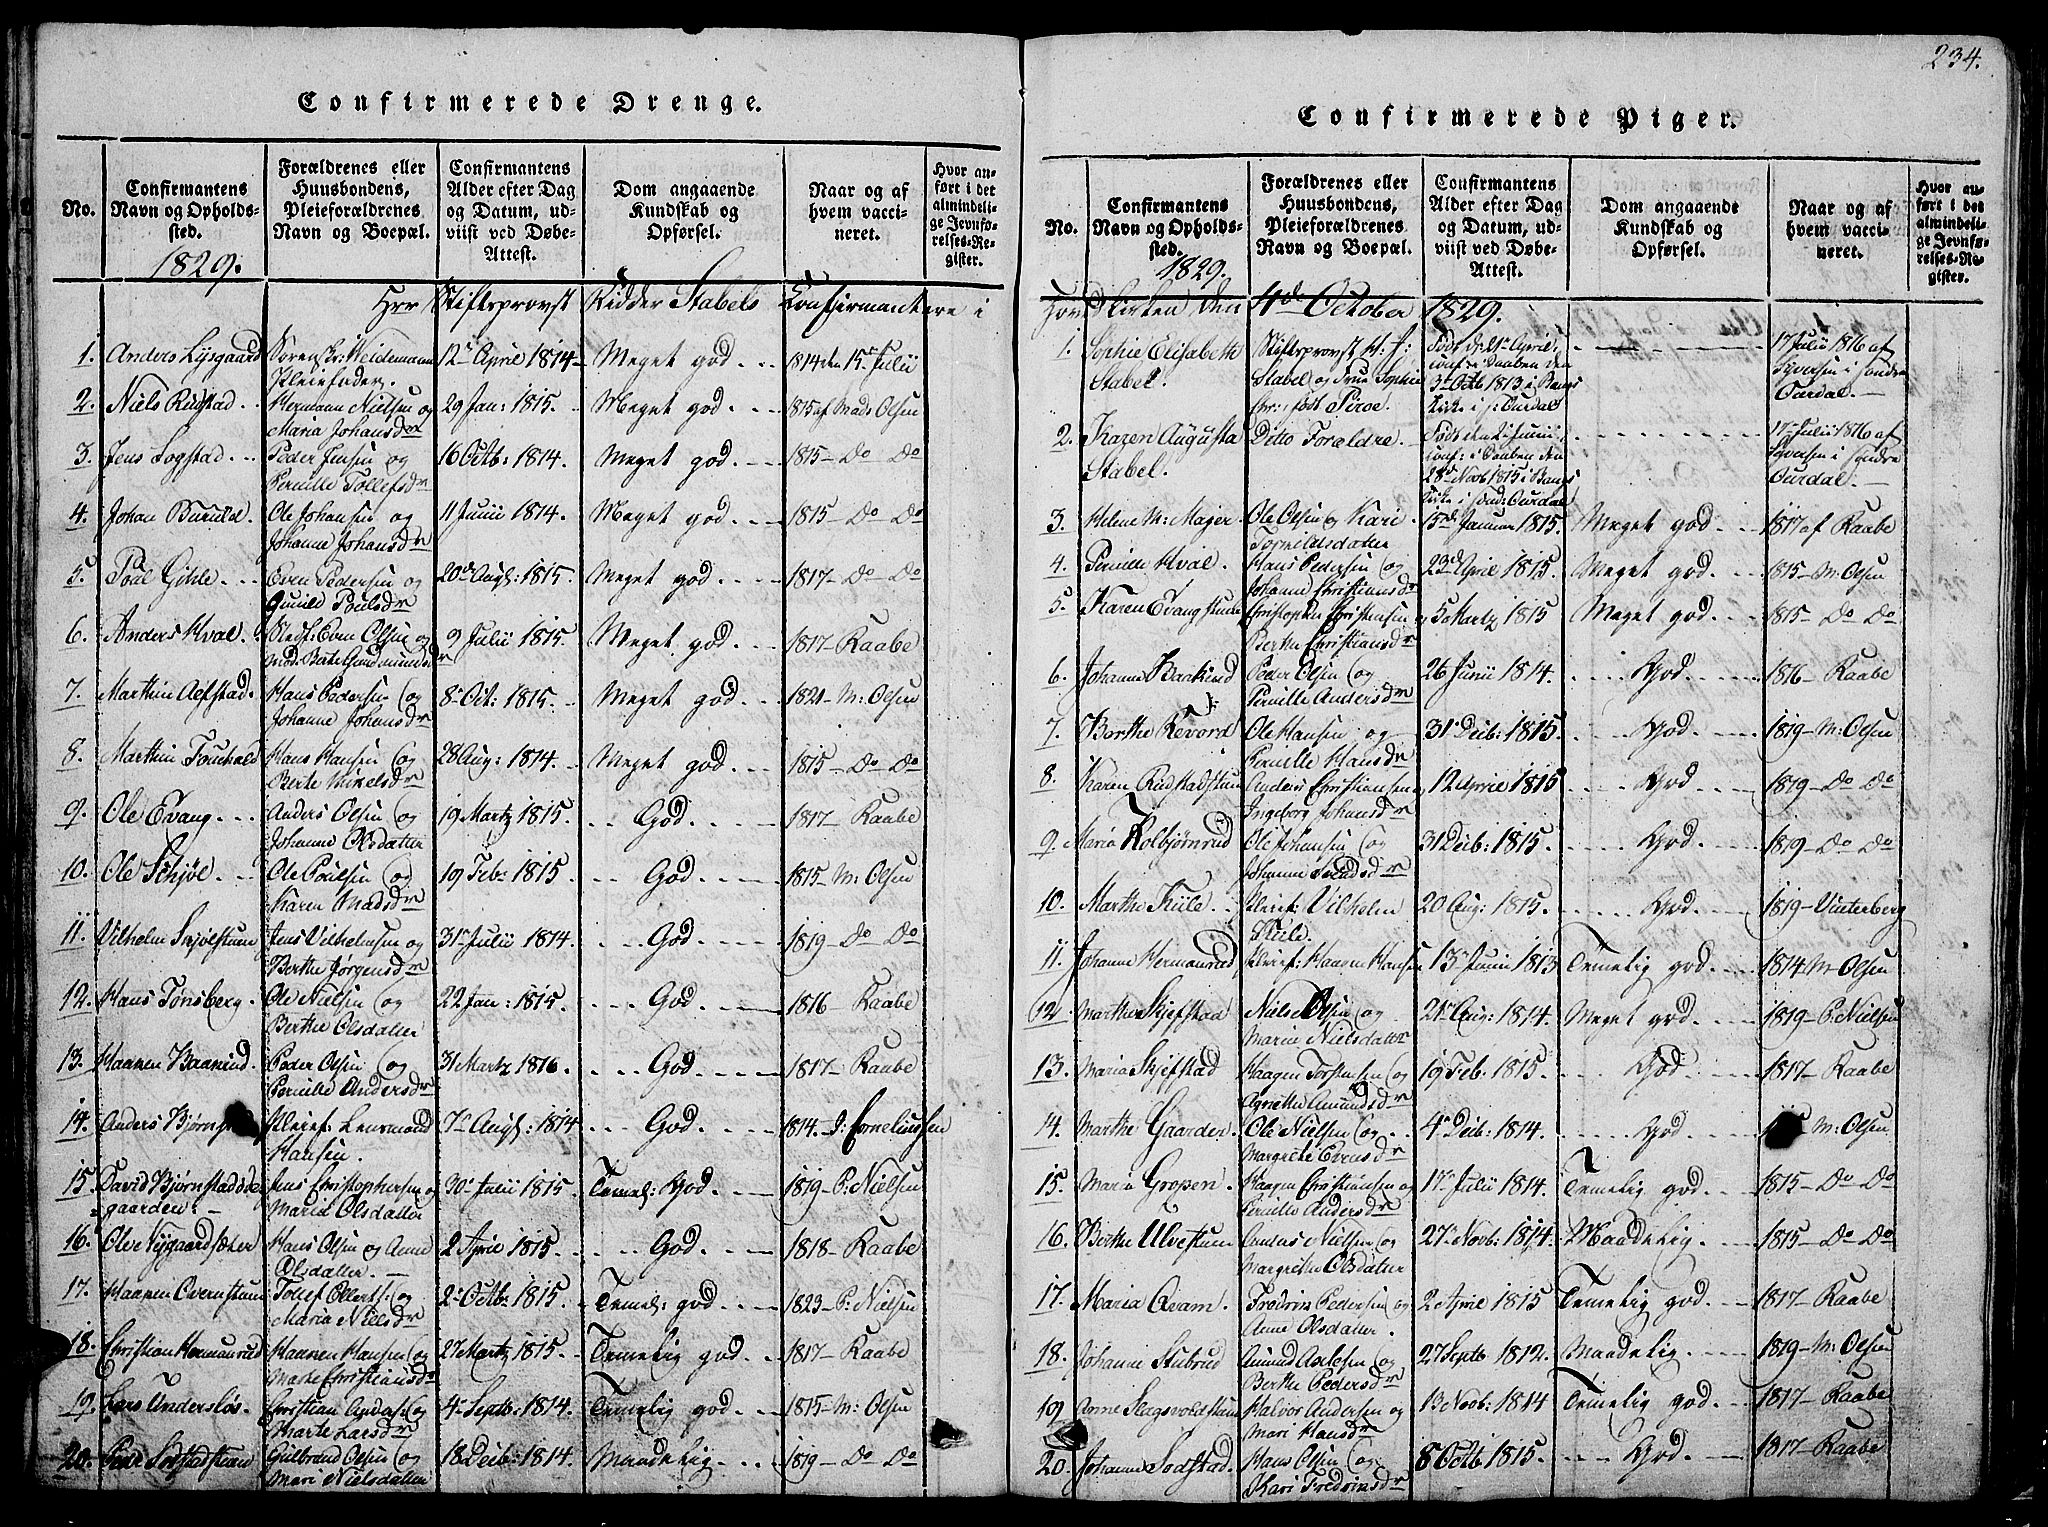 234.
Confirmerede Drenge.
No.
Confirmantens Navn og Opholdssted.
1829.
Forældrenes eller Huusbondens, Pleieforældrenes Navn og Boepæl.
Confirmantens Alder efter Dag og Datum, udviist ved Døbe-Attest.
Dom angaaende Kundskab og Opførsel.
Naar og af hvem vaccineret.
Hvor anført i det almindelige Jevnførelses-Register.
Hrr Stiftsprovst Ridder Stabels Confirmantere i
1. Anders Lysgaard Sorenskr: Heidemann 12te April 1814 Meget god 1814 den 15de Julii
Pleiefader.
2. Niels Rustad Hermann Nielsen og 29 Jan: 1815. Meget god. 1815 af Mads Olsen
Maria Johansdr
3. Jens Sogstad Peder Jensen og 16 Octb: 1814. Meget god. 1815 - Do Do
Pernille Tollefsdr
4. Johan Ole Johansen og 11 Junii 1814. Meget god. 1815 - Do Do
Johanne Johansdr
5. Poul Gihle Even Pedersen og 20de Augs: 1815. Meget god. 1817 - Do Do
Gunild Poulsdr
6. Anders Hval. Even Olsen og 9 Julii 1815. Meget god. 1817 - Raabe
Mod. Berte Gudmundsdr
7. Marthin Alfstad. Hans Pedersen og 8de Oct: 1815. Meget god. 1821 - M: Olsen
Johanne Johansdr
8. Marthin Hans Hansen og 28 Aug: 1814. Meget god. 1815 - Do Do
Berte Mikelsdr
9. Ole Evang Anders Olsen og 19 Martz 1815. God. 1817 - Raabe
Johanne Olsdatter
10. Ole Schjøl Ole Poulsen og 19 Feb: 1815. God. 1815 - M: Olsen
Karen Madsdr
11. Vilhelm Skjølstuen Jens Vilhelmsen og 31te Julii 1814. God. 1819 - Do Do
Berthe Jørgensdr
12. Hans Tønsberg. Ole Nielsen og 22 Jan: 1815. God. 1816 - Raabe
Berthe Olsdatter
13. Haagen Baanrud Peder Olsen og 31 Martz 1816. God. 1817 - Raabe
Pernille Andersdr
14. Anders Pleief: Lensmand 7de Augs: 1814 God. 1814 - J: Corneliussen
Hansen.
15. David Bjørnstadøde Jens Christophersen og 30te Julii 1815. Temel: God. 1819 - P: Nielsen
gaarden. Maria Olsdatter
16. Ole Nygaardsæter Hans Olsen og Anne 2 April 1815. God. 1818 - Raabe
Olsdatter.
17. Haagen Overnstuen Tosten Ellerts: og 2de Octb: 1815. Temel: god. 1823 - P: Nielsen
Maria Nielsdr
18. Christian Hermanrud Haagen Hansen og 27 Martz 1815. Temelig god. 1817 - Raabe
Marte Christiansdr
19. Lars Anderslös. Christian og 4de Septb: 1814. Temelig god. 1815 - M: Olsen
Marte Larsdr
20. Peder Sodstadstuen Gulbrand Olsen og 18 Decb: 1814. Maadelig. 1819 - Do Do
Mari Nielsdatter
Confirmerede Piger.
No.
Confirmantens Navn og Opholdssted.
1829.
Forældrenes eller Huusbondens, Pleieforældrenes Navn og Boepæl.
Confirmantens Alder efter Dag og Datum, udviist ved Døbe-Attest.
Dom angaaende Kundskab og Opførsel.
Naar og af hvem vaccineret.
Hvor anført i det almindelige Jevnførelses-Register.
Hov Kirken den 4de October 1829.
1. Sophie Elisabeth Stiftsprovst H: J: Født d: 21de April, 17 Julii 1816 af
Stabel. Stabel og Frue Sophie conf: i Daaben den Syversen i Søndre
Chr: født Piroe. 3 Octb 1813 i Bangs Ourdal.
Kirke i S: Ourdal
2. Karen Augusta Ditto Forældre. Født den 2 Junii, 17 Julii 1816 af
Stabel. conf: i Daaben den Syversen i Søndre
28de Novb 1815 i Bangs Ourdal.
Kirke i Sønd: Ourdal
3. Helene M: Majer. Ole Olsen og Kari 15de Januar 1815. Meget god. 1817 af Raabe
Torkildsdatter
4. Pernille Hval. Hans Pedersen og 23de April 1815. Meget god. 1815 - M: Olsen
Johanne Christiansdr
5. Karen Evangstuen Christopher Christensen og 5 Martz 1815 Meget god. 1815 - Do Do
Berthe Christiansdr
6. Johanne Baanrud Peder Olsen og 26 Junii 1814. God. 1816 - Raabe
Pernille Andersdr
7. Berthe Revord Ole Hansen og 31 Decb: 1815. God. 1819 - M: Olsen
Pernille Hansdr
8. Karen Rustadstuen Anders Christiansen og 12 April 1815 God 1819 - Do Do
Ingeborg Johansdr
9. Maria Kolbjørnrud Ole Johansen og 31 Decb: 1815. God. 1819 - Do Do
Johanne
10. Marthe Kiile. Pleief: Vilhelm 20 Aug: 1815. God. 1819 - Vinterberg
Kiile.
11. Johanne Hermanrud Pleief: Haagen Hansen 13de Junii 1813 Temelig god. 1814 M: Olsen
12. Marthe Skjefstad Niels Olsen og 21de Aug: 1814. Meget god. 1819 - P: Nielsen
Marie Nielsdatter
13. Maria Skjefstad Haagen Torstensen og 19 Feb: 1815. God. 1817 - Raabe
Agnethe Amundsdr
14. Marthe Gaarder. Ole Nielsen og 4de Decb: 1814. God M: Olsen
Margrethe Evensdr
15. Maria Gropen. Haagen Christiansen og 17de Julii 1814. Temelig god. 1815 - Do Do
Pernille Andersdr
16. Berthe Ulvestuen Anders Nielsen og 27de Novb: 1814. Maadelig. 1815 - Do Do
Margrethe Olsdatter
17. Maria Qvam. Fredrin Pedersen og 2 April 1815 Temelig god. 1817 - Raabe
Anne Olsdatter.
18. Johanne Stubrud Amund Axelsen og 27 Septb 1812. Maadelig. 1819 - M: Olsen
Berthe Pedersdr
19 Anne Slagsvoldstuen Halvor Andersen og 13 Novb: 1814 Temelig god. 1817 - Raabe
Mari Hansdr
20. Johanne Sodstad. Hans Olsen og 8 Octb 1815. God. 1817 - Raabe
Kari Fredrinsdr